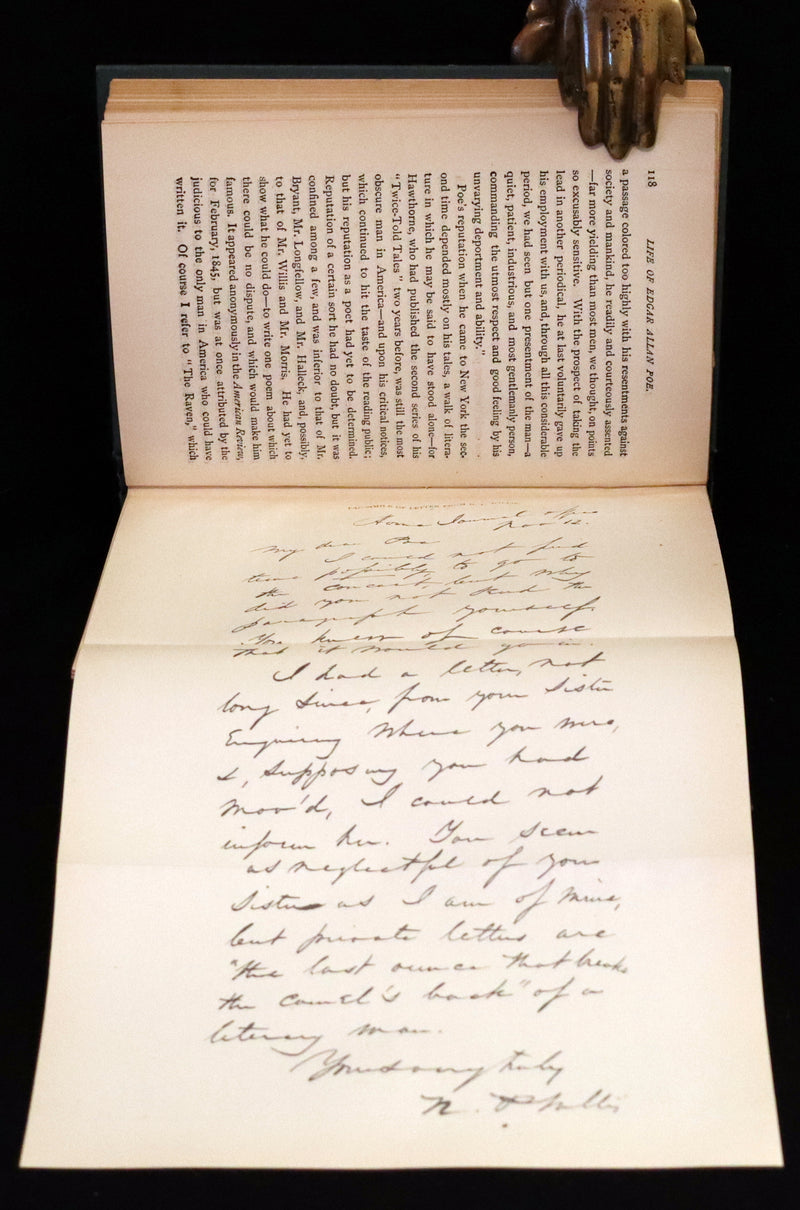 118 LIFE OF EDGAR ALLAN POE.
a passage colored too highly with his resentments against
society and mankind, he readily and courteously assented
—far more yielding than most men, we thought, on points
so excusably sensitive. With the prospect of taking the
lead in another periodical, he at last voluntarily gave up
his employment with us, and, through all this considerable
period, we had seen but one presentment of the man—a
quiet, patient, industrious, and most gentlemanly person,
commanding the utmost respect and good feeling by his
unvarying deportment and ability."
Poe's reputation when he came to New York the sec-
ond time depended mostly on his tales, a walk of litera-
ture in which he may be said to have stood alone—for
Hawthorne, who had published the second series of his
"Twice-Told Tales" two years before, was still the most
obscure man in America—and upon his critical notices,
which continued to hit the taste of the reading public;
but his reputation as a poet had yet to be determined.
Reputation of a certain sort he had no doubt, but it was
confined among a few, and was inferior to that of Mr.
Bryant, Mr. Longfellow, and Mr. Halleck, and, possibly,
to that of Mr. Willis and Mr. Morris. He had yet to
show what he could do—to write one poem about which
there could be no dispute, and which would make him
famous. It appeared anonymously in the American Review,
for February, 1845, but was at once attributed by the
judicious to the only man in America who could have
written it. Of course I refer to "The Raven," which
Home Journal office
12.
My dear Poe
I could not find
time possibly to go to
the concert, but why
did you not send the
paragraph yourself.
You knew of course
that it would go in.
I had a letter, not
long since, from your Sister
Enquiring where you were,
&, supposing you had
mov'd, I could not
inform her. You seem
as neglectful of your
Sister as I am of mine,
but private letters are
"the last ounce that breaks
the camel's back" of a
literary man.
Yours very truly
N. P. Willis